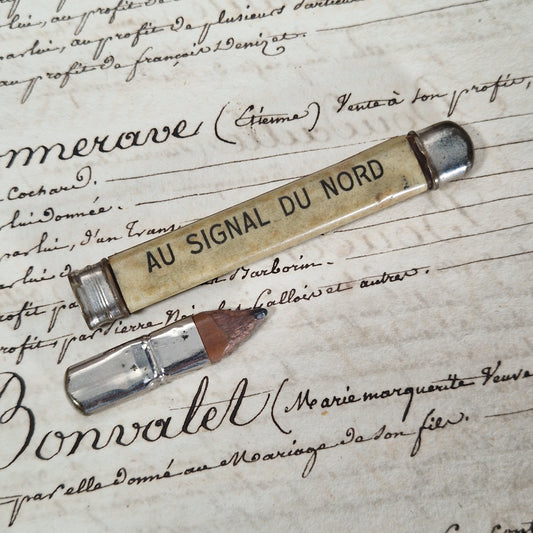 parlui, au profit de plusieurs
parlui, au profit de
au profit de françois Denizet.
nnerave (Etienne) Vente à son profit,
Cochard.
lui donnée.
parlui, d'un
AU SIGNAL DU NORD
Barborin.
profit
profit, par Pierre Gallois et autres.
Bonvalet (Marie marguerite Veuve
par elle donné au Mariage de son fils.